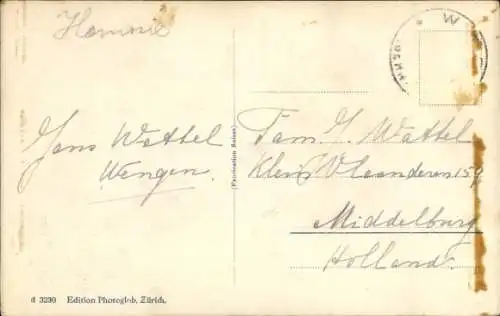 Hommie
W
Fam. J. Wattel
Klein Vlaanderen 159
Middelburg
Holland.
Jans Wattel
Wengen.
(Fabrication Suisse)
d 3230 Edition Photoglob, Zürich.